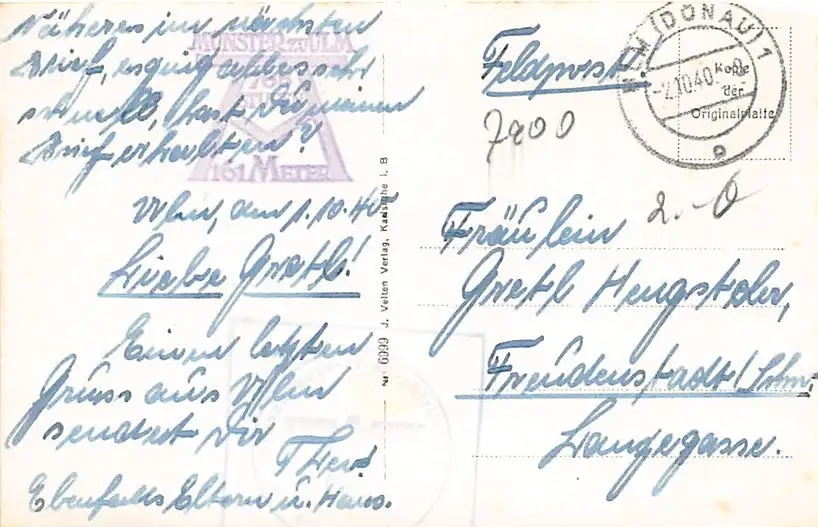 Näheres im nächsten
Brief, es ging alles sehr
schnell, hast Du meinen
Brief erhalten?
MÜNSTER ZU ULM
161 METER
Ulm, den 1.10.40
Liebe Gretl!
Einen letzten
Gruss aus Ulm
sendet Dir
Ebenfalls Eltern u. Hans.
Nr. 6999 J. Velten Verlag, Karlsruhe i. B
Feldpost.
7900
ULM (DONAU) 1
-2.10.40
Kopie
der
Originalplatte
2.-
Fräulein
Gretl Hengstler,
Freudenstadt / Schw.
Langegasse.